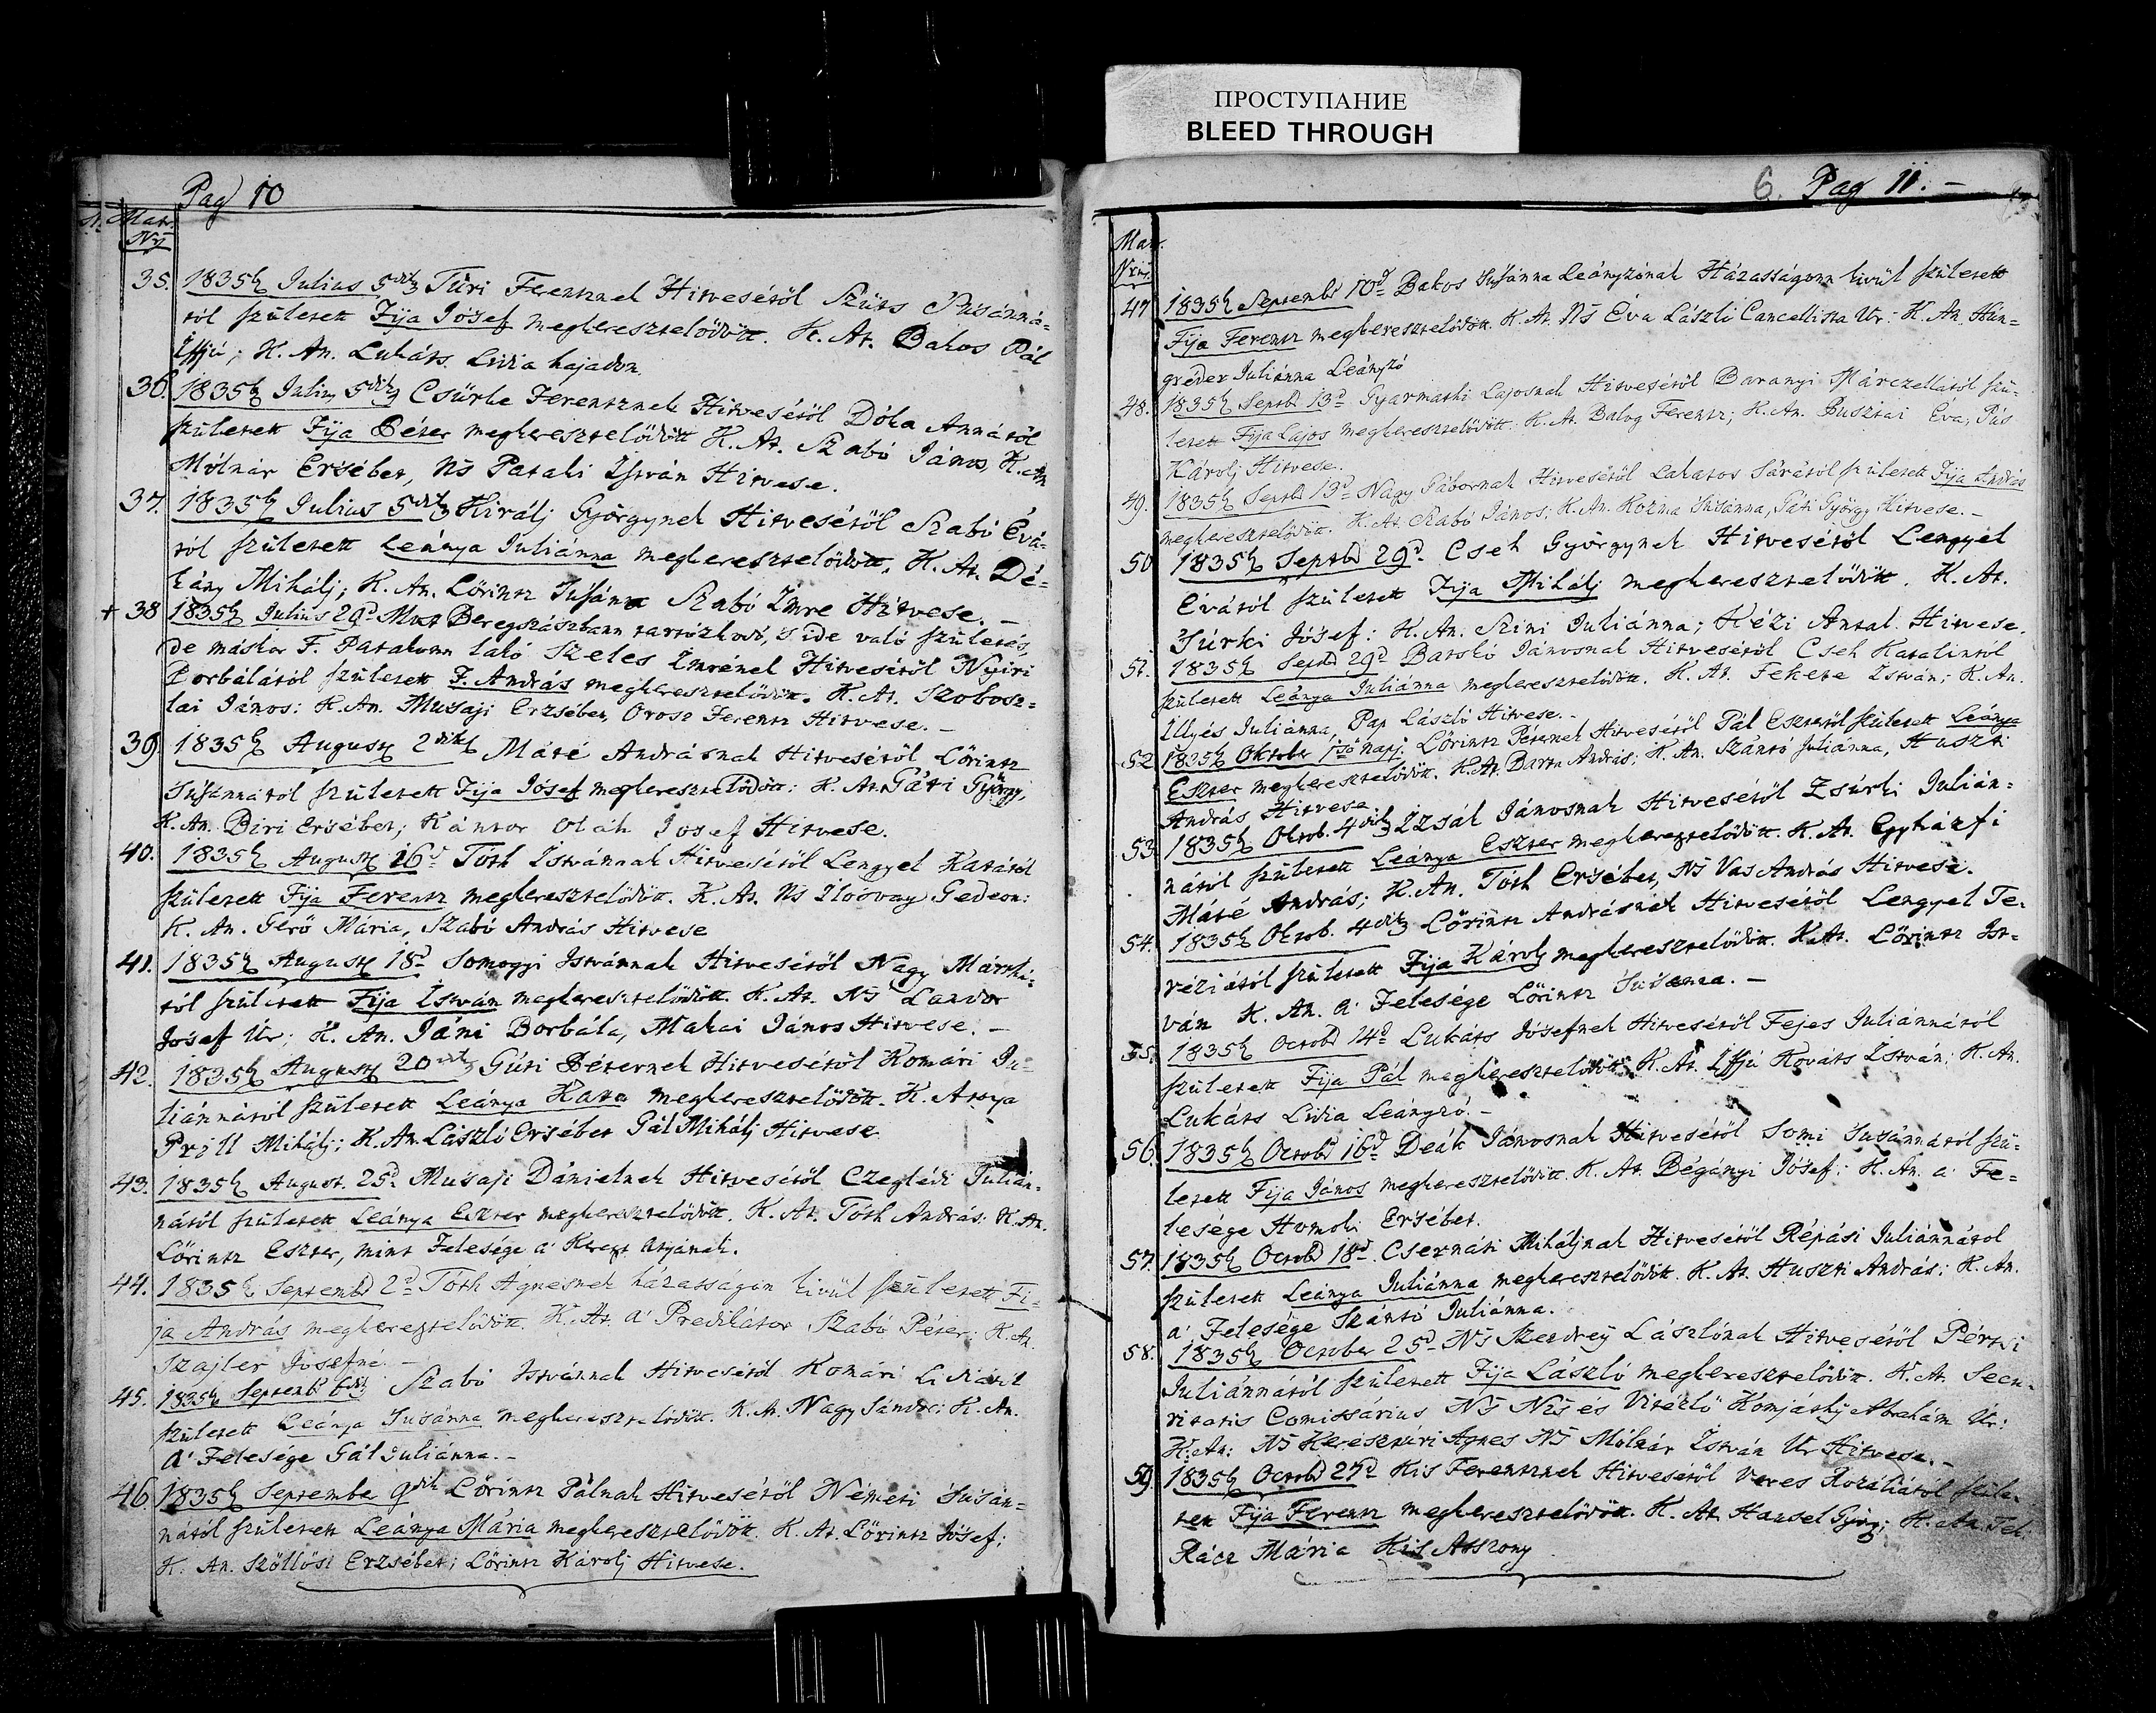 ПРОСТУПАНИЕ
BLEED THROUGH
Pag 10
Mar.
35. 1835 Julius 5dik Túri Ferentznek Hitvesétöl Szüts Susánná=
tól született Fija Jósef megkereszteltödött. K. At. Bakos Pál
Iffjú; K. An. Lukáts Lidia hajadon.
36. 1835 Julius 5dik Csürke Ferentznek Hitvesétöl Dóka Annától
született Fija Péter megkeresztelödött K. At. Szabó János, K. An
Mólnár Ersébet, Ns Pataki István Hitvese.
37. 1835 Julius 5dik Király Györgynek Hitvesétöl Szabó Évá=
tól született Leánya Juliánna megkeresztelödött. K. At. Dé=
kány Mihálj; K. An. Lörintz Susánna Szabó Imre Hitvese. —
+ 38 1835 Julius 29d Most Beregszászbann tartózkodó, 's ide való születés,
de máskor F. Patakonn lakó Szeles Imrének Hitvesétöl Nyiri
Borbálától született F. András megkeresztelödött. K. At. Szobosz=
lai János: K. An. Musaji Erzsébet, Orosz Ferentz Hitvese. —
39. 1835 August 2dik Máté Andrásnak Hitvesétöl Lörintz
Susánnától született Fija Jósef megkeresztelödött: K. At. Páti György,
K. An. Biri Ersébet; Kántor Oláh Josef Hitvese.
40. 1835 August 16d Tóth Istvánnak Hitvesétöl Lengyel Katától
született Fija Ferentz megkeresztelödött. K. At. Ns Ilosvay Gedeon:
K. An. Gerö Mária, Szabó András Hitvese
41. 1835 August 18d Somogyi Istvánnak Hitvesétöl Nagy Mártá-
tól született Fija István megkeresztelödött. K. At. Ns Landor
Jósef Úr; K. An. Jáni Borbála, Makai János Hitvese. —
42. 1835 August 20dik Gúti Péternek Hitvesétöl Komári Ju-
liánnától született Leánya Kata megkeresztelödött. K. Attya
Prill Mihálj; K. An. László Ersébet Gál Mihálj Hitvese
43. 1835 August. 25d Musaji Dánielnek Hitvesétöl Czeglédi Julián-
nától született Leánya Eszter megkeresztelödött. K. At. Tóth András: K. An.
Lörintz Eszter, mint Felesége a' Kereszt Atyának.
44. 1835 Septembr 2d Tóth Ágnesnek házasságon kivül született Fi-
ja András megkeresztelödött. K. At. a' Predikátor Szabó Péter; K. An.
Szajler Josefné. —
45. 1835 Septemb 6dik Szabó Istvánnak Hitvesétöl Komári Lidiától
született Leánya Susánna megkeresztelödött. K. At. Nagy Sándor; K. An.
A' Felesége Gál Juliánna. —
46. 1835 September 9dik Lörintz Pálnak Hitvesétöl Németi Susán=
nától született Leánya Mária megkeresztelödött. K. At. Lörintz Jósef;
K. An. Szöllösi Erzsébet; Lörintz Károlj Hitvese.
6. Pag 11. —
Mar.
47 1835 Septembr 10d Bakos Susánna Leányzónak Házasságonn kivül született
Fija Ferentz megkeresztelödött. K. At. Ns Éva László Cancellista Ur: K. An. Hun=
gréder Juliánna Leányzó
48. 1835 Septbr 13d Gyarmathi Lajosnak Hitvesétöl Baranyi Márczellától szü-
letett Fija Lajos megkeresztelödött: K. At. Balog Ferentz; K. An. Pusztai Éva; Pás
Károlj Hitvese.
49. 1835 Septbr 13d Nagy Gábornak Hitvesétöl Lakatos Sárától született Fija András
megkeresztelödött. K. At. Szabó János; K. An. Kozma Susánna, Páti György Hitvese. —
50 1835 Septbr 29d Cseh Györgynek Hitvesétöl Lengyel
Évától született Fija Mihálj megkeresztelödött. K. At.
Súrki Jósef: K. An. Szini Juliánna; Kézi Antal Hitvese.
51. 1835 Septbr 29d Batskó Jánosnak Hitvesétöl Cseh Katalintól
született Leánya Juliánna megkeresztelödött. K. At. Fekete István; K. An.
Illyés Juliánna, Pap László Hitvese. —
52 1835 Oktober 1sö napj. Lörintz Péternek Hitvesétöl Pál Esztertöl született Leánya
Eszter megkeresztelödött. K. At. Barta András; K. An. Szántó Juliánna, Huszti
András Hitvese.
53. 1835 Oktob. 4dik Izsák Jánosnak Hitvesétöl Zsúrki Julián=
nától született Leánya Eszter megkeresztelödött. K. At. Egyházfi
Máté András; K. An. Tóth Ersébet, Ns Vas András Hitvese.
54. 1835 Oktob. 4dik Lörintz Andrásnak Hitvesétöl Lengyel Te-
réziától született Fija Károlj megkeresztelödött. K. At. Lörintz Ist-
ván K. An. a' Felesége Lörintz Susánna. —
55. 1835 Octobr 14d Lukáts Jósefnek Hitvesétöl Fejes Juliánnától
született Fija Pál megkeresztelödött. K. At. Iffjú Kováts István; K. An.
Lukáts Lidia Leányzó. —
56. 1835 Octobr 16d Deák Jánosnak Hitvesétöl Somi Susánnától szü-
letett Fija János megkeresztelödött. K. At. Bégányi Jósef: K. An. a' Fe=
lesége Homoki Ersébet.
57. 1835 Octobr 18d. Csernáti Miháljnak Hitvesétöl Répási Juliánnától
született Leánya Juliánna megkeresztelödött. K. At. Huszti András: K. An.
a' Felesége Szántó Juliánna.
58. 1835 October 25d Ns Szendrey Lászlónak Hitvesétöl Pértsi
Juliánnától született Fija László megkeresztelödött. K. At. Secu-
ritatis Comissárius Ns Ns és Vitézlö Komjáthy Abrahám Úr:
K: An: Ns Keresztúri Agnes Ns Mólnár István Ur Hitvese. —
59. 1835 Octobr 27d Kis Ferentznek Hitvesétöl Veres Rozáliától szüle-
tett Fija Ferentz megkeresztelödött. K. At. Hansel Györg; K. An. Fel.
Rácz Mária Kis Asszony